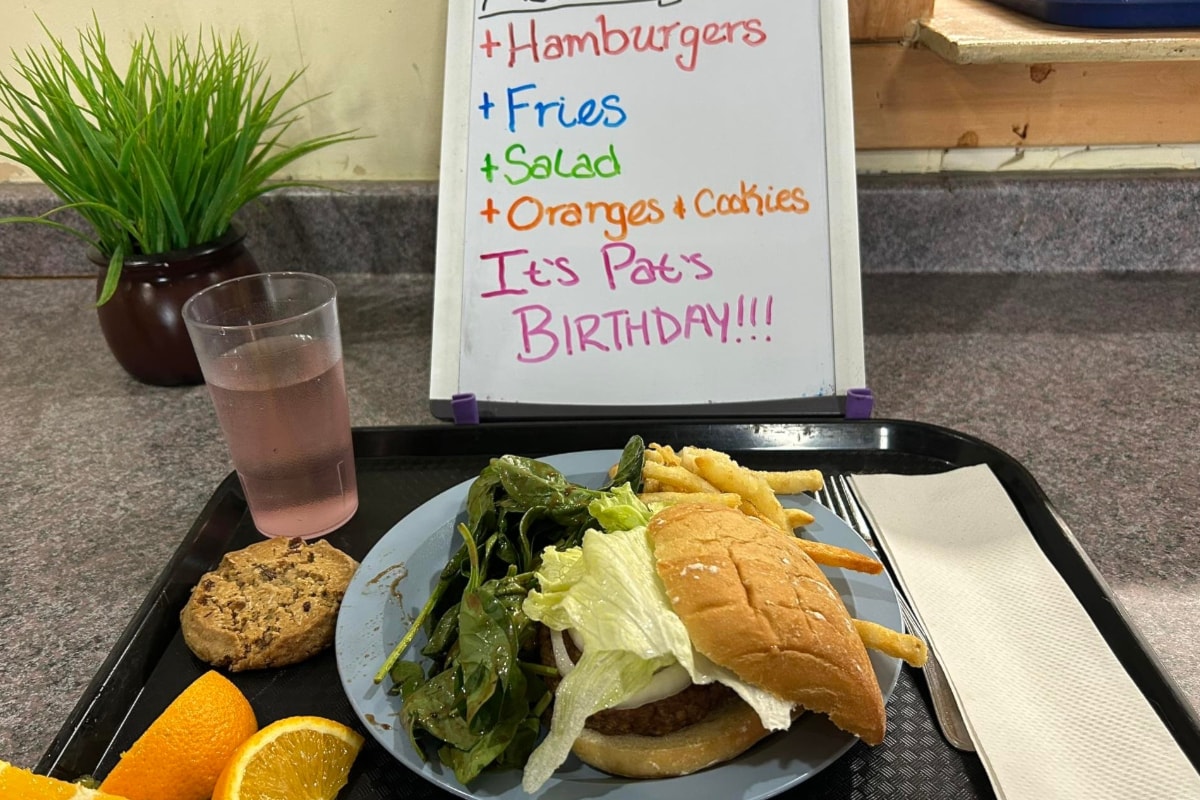 +Hamburgers
+Fries
+Salad
+Oranges & Cookies
It's Pat's
BIRTHDAY!!!